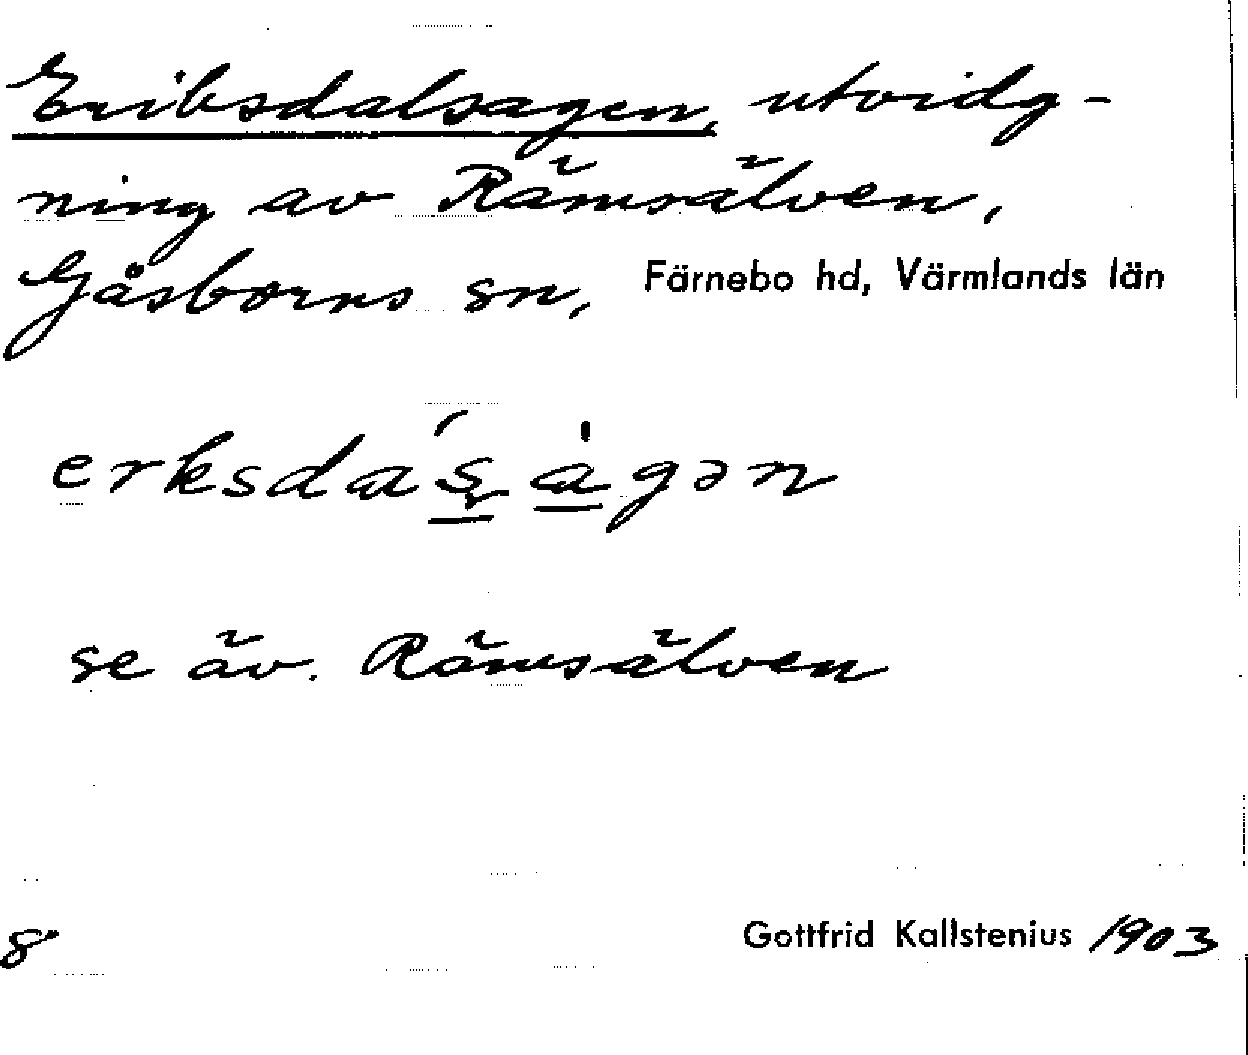 Eriksdalsagen, utvidg-
ning av Rämsälven,
Gåsborns sn, Färnebo hd, Värmlands län
erksdaʹʂàgən
se äv. Rämsälven
8
Gottfrid Kallstenius 1903